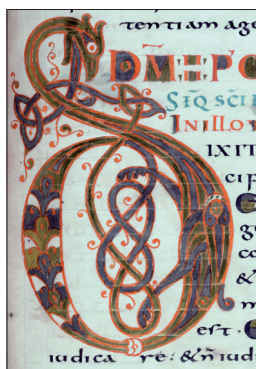 tentiam age
DM̄
SEQ SCI
IN ILLO
D IXIT
cip
co
&
m
est.
iudica re: & n̄ iudi